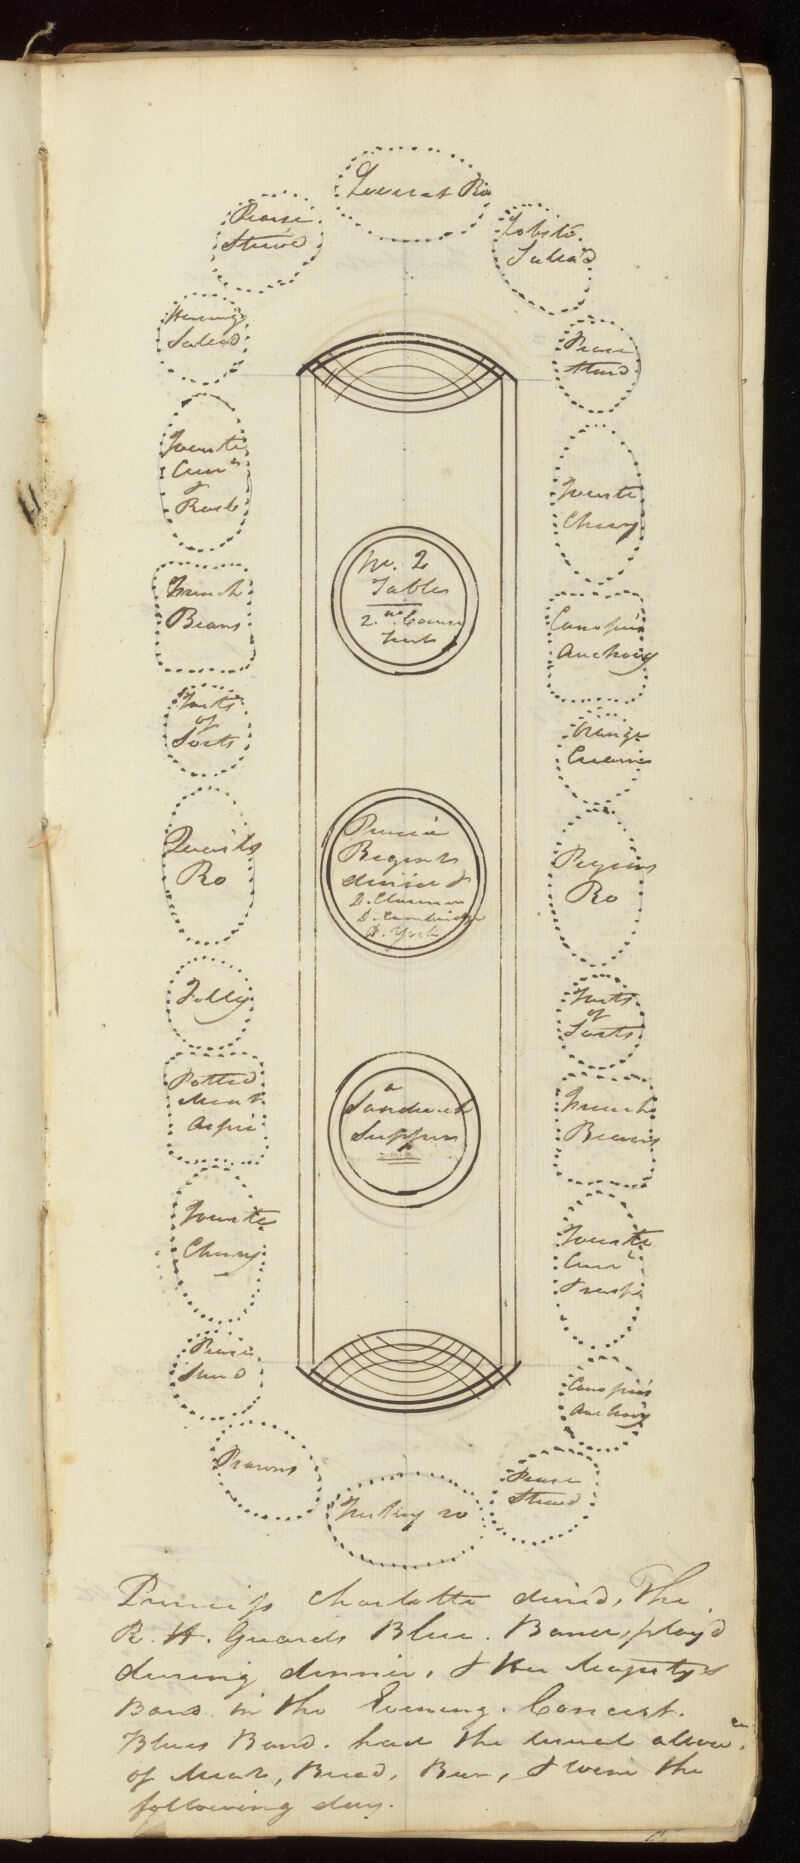 Leveret Ro
Pease
Stewed
Lobster
Salad
Salad
Pease
Stewd
Tourte
Curr
&
Rasb
Tourte
Cherry
French
Beans
Canopies
Anchovy
No. 2
Tables
2nd Course
Tarts
of
Sorts
Orange
Cream
Prince
Regent
dined &
D. Clarence
D. Cambridge
D. York
Quails
Ro
Pigeons
Ro
Jelly
Tarts
of
Sorts
a
Sandwich
Supper
Potted
Meat
Aspic
French
Beans
Tourte
Cherry
Tourte
Curr
& rasp
Pease
Stewd
Canopies
Anchovy
Prawns
Pease
Stewd
Turkey ro
Princess Charlotte dined, The
R. H. Guards Blue. Band, play'd
during dinner, & Her Majestys
Band in the Evening. Concert.
Blues Band. had the usual allowce.
of Meat, Bread, Beer, & wine the
following day.